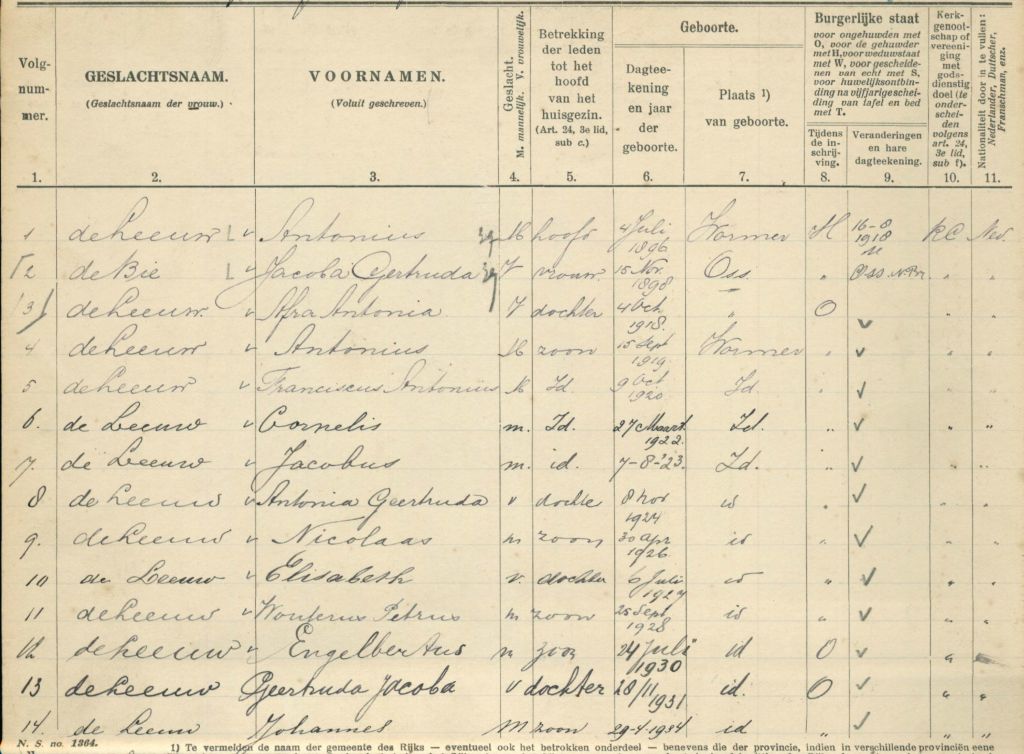 Volg-
num-
mer.
1.
GESLACHTSNAAM.
(Geslachtsnaam der vrouw.)
2.
VOORNAMEN.
(Voluit geschreven.)
3.
Geslacht.
M. mannelijk. V. vrouwelijk.
4.
Betrekking
der leden
tot het
hoofd
van het
huisgezin.
(Art. 24, 3e lid,
sub c.)
5.
Geboorte.
Dagtee-
kening
en jaar
der
geboorte.
6.
Plaats ¹)
van geboorte.
7.
Burgerlijke staat
voor ongehuwden met
O, voor de gehuwden
met H, voor weduwstaat
met W, voor gescheide-
nen van echt met S,
voor huwelijksontbin-
ding na vijfjarigeschei-
ding van tafel en bed
met T.
Tijdens
de in-
schrij-
ving.
8.
Veranderingen
en hare
dagteekening.
9.
Kerk-
genoot-
schap of
vereeni-
ging
met
gods-
dienstig
doel (te
onder-
schei-
den
volgens
art. 24,
3e lid,
sub f).
10.
Nationaliteit door in te vullen:
Nederlander, Duitscher,
Franschman, enz.
11.
1 de Leeuw L v Antonius M hoofd 4 Juli 1896 Wormer H 16-8 1918 RC Ned.
2 de Bie L v Jacoba Gertruda V vrouw 15 Nov. 1898 Oss " Oss N.Br. " "
3 de Leeuw v Afra Antonia V dochter 4 Oct 1918 " O ✓ " "
4 de Leeuw v Antonius M zoon 15 Sept 1919 Wormer " ✓ " "
5 de Leeuw v Franciscus Antonius M Id. 9 Oct 1920 Id. " ✓ " "
6. de Leeuw v Cornelis m. Id. 27 Maart 1922. Id. " ✓ " "
7. de Leeuw v Jacobus m. id. 7-8-'23. Id. " ✓ " "
8 de Leeuw v Antonia Geertruda v dochte 8 nov 1924 id " ✓ " "
9. de Leeuw v Nicolaas m zoon 30 apr 1926 id " ✓ " "
10 de Leeuw v Elisabeth v. dochter 6 Juli 1927 id " ✓ " "
11 de Leeuw v Wouterus Petrus m zoon 25 Sept 1928 id " ✓ " "
12 de Leeuw v Engelbertus m zoon 24 Juli 1930 id O ✓ "
13 de Leeuw Geertruda Jacoba v dochter 28/11 1931 id. O ✓ " "
14. de Leeuw Johannes M zoon 29-4-1934 id " ✓ " "
N. S. no. 1364.
1) Te vermelden de naam der gemeente des Rijks — eventueel ook het betrokken onderdeel — benevens die der provincie, indien in verschillende provinciën eene